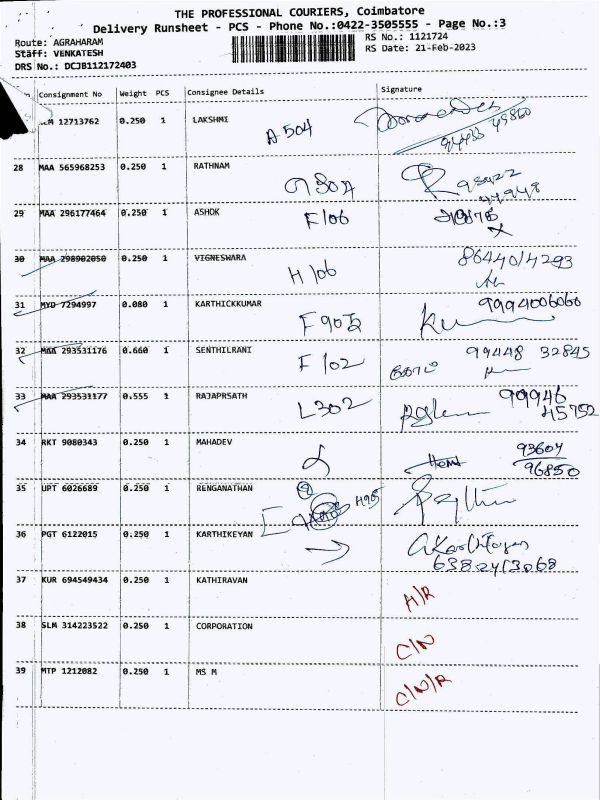 THE PROFESSIONAL COURIERS, Coimbatore
Delivery Runsheet - PCS - Phone No.:0422-3505555 - Page No.:3
Route: AGRAHARAM RS No.: 1121724
Staff: VENKATESH RS Date: 21-Feb-2023
DRS No.: DCJB112172403
Consignment No Weight PCS Consignee Details Signature
12713762 0.250 1 LAKSHMI A 504
28 MAA 565968253 0.250 1 RATHNAM
29 MAA 296177464 0.250 1 ASHOK F106
30 MAA 298902050 0.250 1 VIGNESWARA H106 8644014293
31 MYD 7294997 0.080 1 KARTHICKKUMAR F 902 9994006060
32 MAA 293531176 0.660 1 SENTHILRANI F 102 99448 32845
33 MAA 293531177 0.555 1 RAJAPRSATH L302 99946
45752
34 RKT 9080343 0.250 1 MAHADEV 93604
96850
35 UPT 6026689 0.250 1 RENGANATHAN
36 PGT 6122015 0.250 1 KARTHIKEYAN
6382413068
37 KUR 694549434 0.250 1 KATHIRAVAN H/R
38 SLM 314223522 0.250 1 CORPORATION C/N
39 MTP 1212082 0.250 1 MS M C/N/R